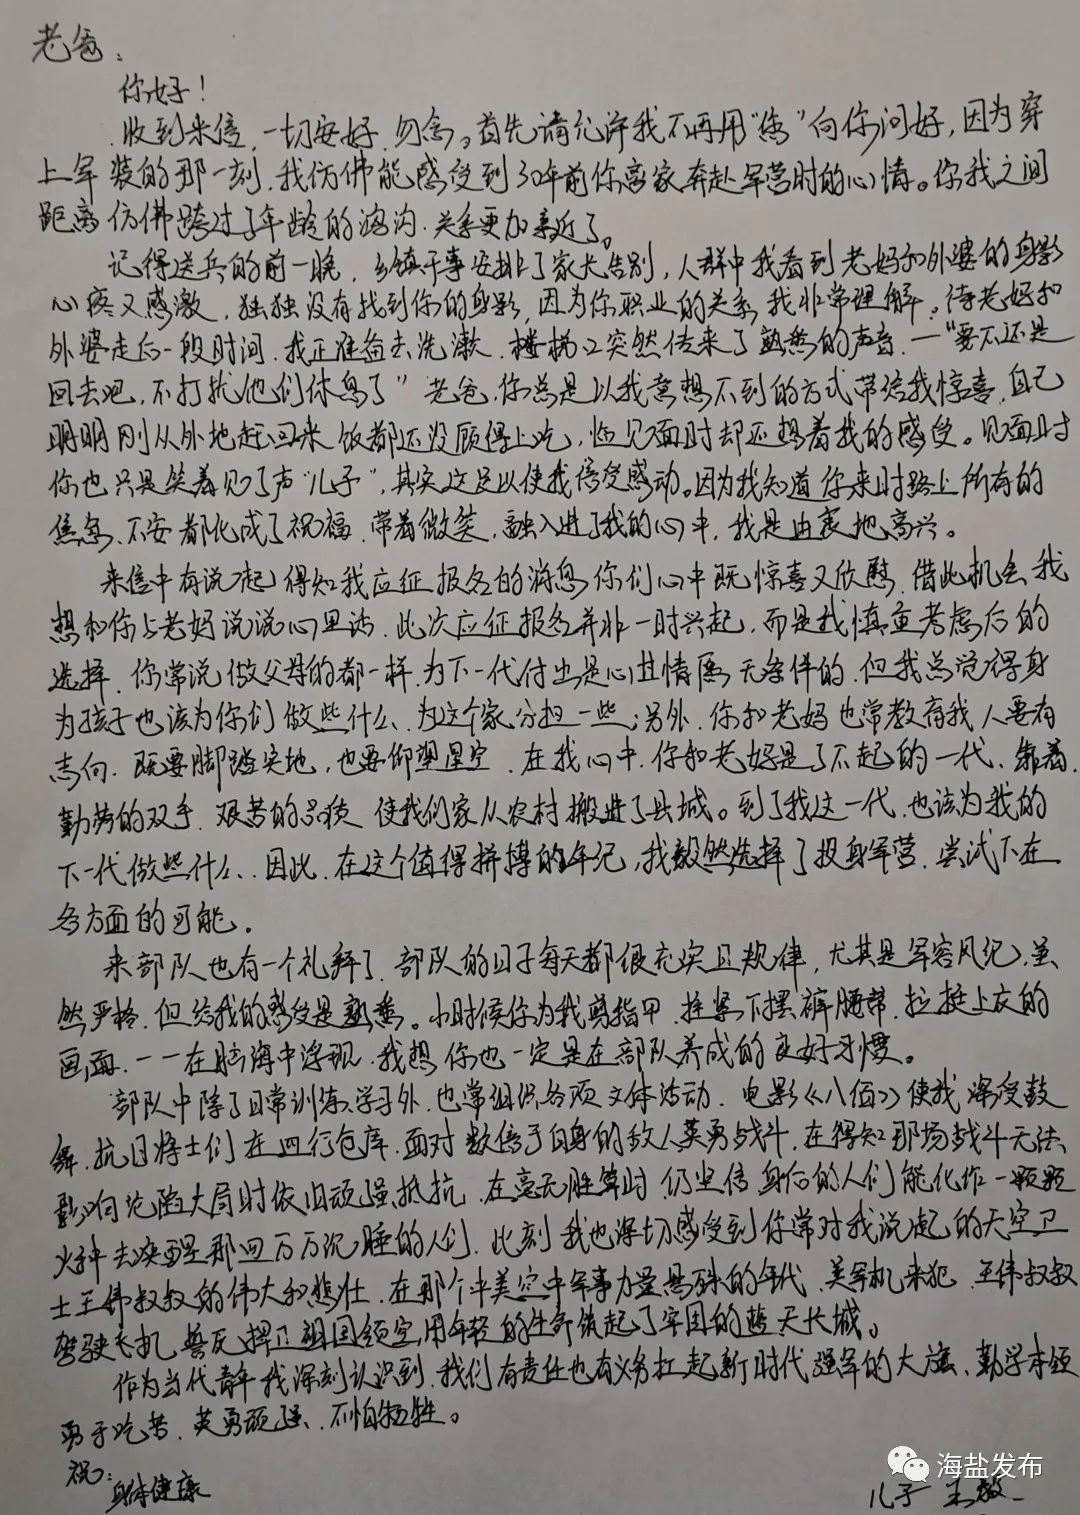 老爸：
你好！
收到来信，一切安好，勿念。首先请允许我不再用“您”向你问好，因为穿
上军装的那一刻，我仿佛能感受到30年前你离家奔赴军营时的心情。你我之间
距离仿佛跨过了年龄的鸿沟，关系更加亲近了。
记得送兵的前一晚，乡镇干事安排了家人告别，人群中我看到老妈和外婆的身影
心疼又感激，独独没有找到你的身影，因为你职业的关系，我非常理解。待老妈和
外婆走后一段时间，我正准备去洗漱，楼梯口突然传来了熟悉的声音，一“要不还是
回去吧，不打扰他们休息了”老爸，你总是以我意想不到的方式带给我惊喜，自己
明明刚从外地赶回来饭都还没顾得上吃，临见面时却还想着我的感受。见面时
你也只是笑着见了声“儿子”，其实这足以使我倍受感动。因为我知道你来时路上所有的
焦急、不安都化成了祝福，带着微笑，融入进了我的心中，我是由衷地高兴。
来信中有说起得知我应征报名的消息你们心中既惊喜又欣慰，借此机会我
想和你与老妈说说心里话，此次应征报名并非一时兴起，而是我慎重考虑后的
选择，你常说做父母的都一样，为下一代付出是心甘情愿、无条件的，但我总觉得身
为孩子也该为你们做些什么、为这个家分担一些；另外，你和老妈也常教育我人要有
志向，既要脚踏实地，也要仰望星空，在我心中，你和老妈是了不起的一代、靠着
勤劳的双手、艰苦的品质，使我们家从农村搬进了县城。到了我这一代，也该为我的
下一代做些什么、因此，在这个值得拼搏的年纪，我毅然选择了投身军营，尝试下在
各方面的可能。
来部队也有一个礼拜了，部队的日子每天都很充实且规律，尤其是军容风纪，虽
然严格，但给我的感受是熟悉。小时候你为我剪指甲，拴紧下摆裤腰带，拉挺上衣的
画面，一一在脑海中浮现，我想你也一定是在部队养成的良好习惯。
部队中除了日常训练、学习外，也常组织各项文体活动，电影《八佰》使我深受鼓
舞，抗日将士们在四行仓库，面对数倍于自身的敌人英勇战斗，在得知那场战斗无法
影响沦陷大局时依旧顽强抵抗，在毫无胜算时，仍坚信身后的人们能化作一颗颗
火种去唤醒那四万万沉睡的人们，此刻我也深切感受到你常对我说起的天空卫
士王伟叔叔的伟大和悲壮，在那个中美空中军事力量悬殊的年代，美军机来犯，王伟叔叔
驾驶飞机，誓死捍卫祖国领空，用年轻的生命筑起了牢固的蓝天长城。
作为当代青年我深刻认识到，我们有责任也有义务扛起新时代强军的大旗、勤学本领
勇于吃苦、英勇顽强、不怕牺牲。
祝：
身体健康
儿子 王
海盐发布